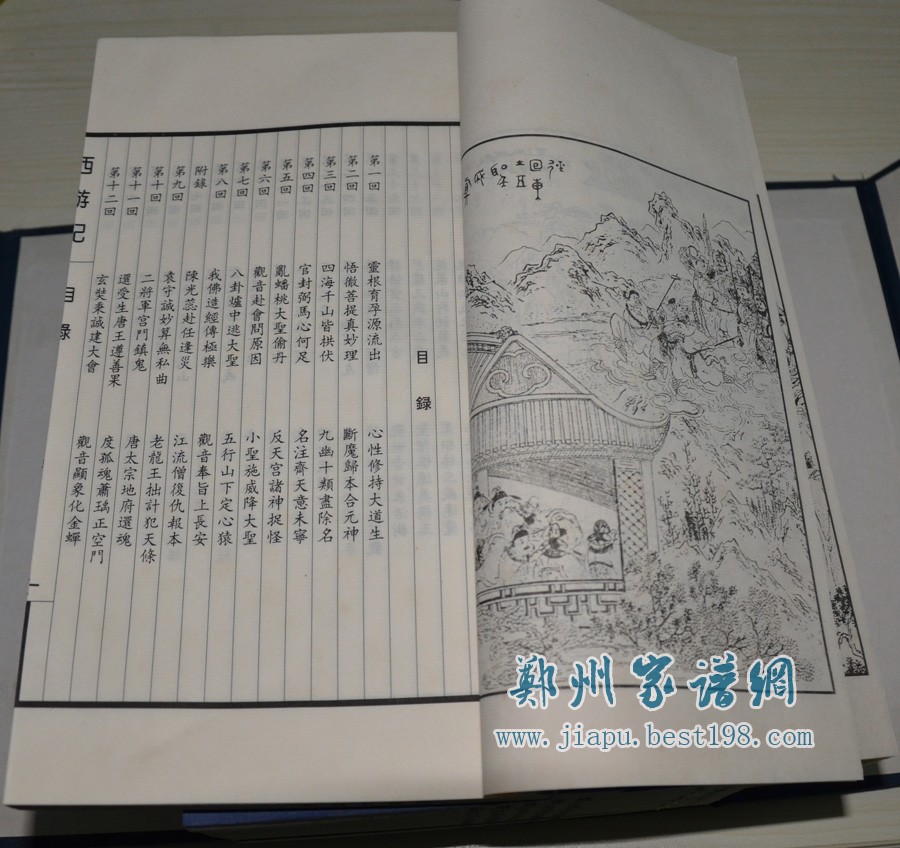 目錄
第一回 靈根育孕源流出 心性修持大道生
第二回 悟徹菩提真妙理 斷魔歸本合元神
第三回 四海千山皆拱伏 九幽十類盡除名
第四回 官封弼馬心何足 名注齊天意未寧
第五回 亂蟠桃大聖偷丹 反天宮諸神捉怪
第六回 觀音赴會問原因 小聖施威降大聖
第七回 八卦爐中逃大聖 五行山下定心猿
第八回 我佛造經傳極樂 觀音奉旨上長安
附錄 陳光蕊赴任逢災 江流僧復仇報本
第九回 袁守誠妙算無私曲 老龍王拙計犯天條
第十回 二將軍宮門鎮鬼 唐太宗地府還魂
第十一回 還受生唐王遵善果 度孤魂蕭瑀正空門
第十二回 玄奘秉誠建大會 觀音顯象化金蟬
西游記
目錄
一
鄭州家譜網
www.jiapu.best198.com